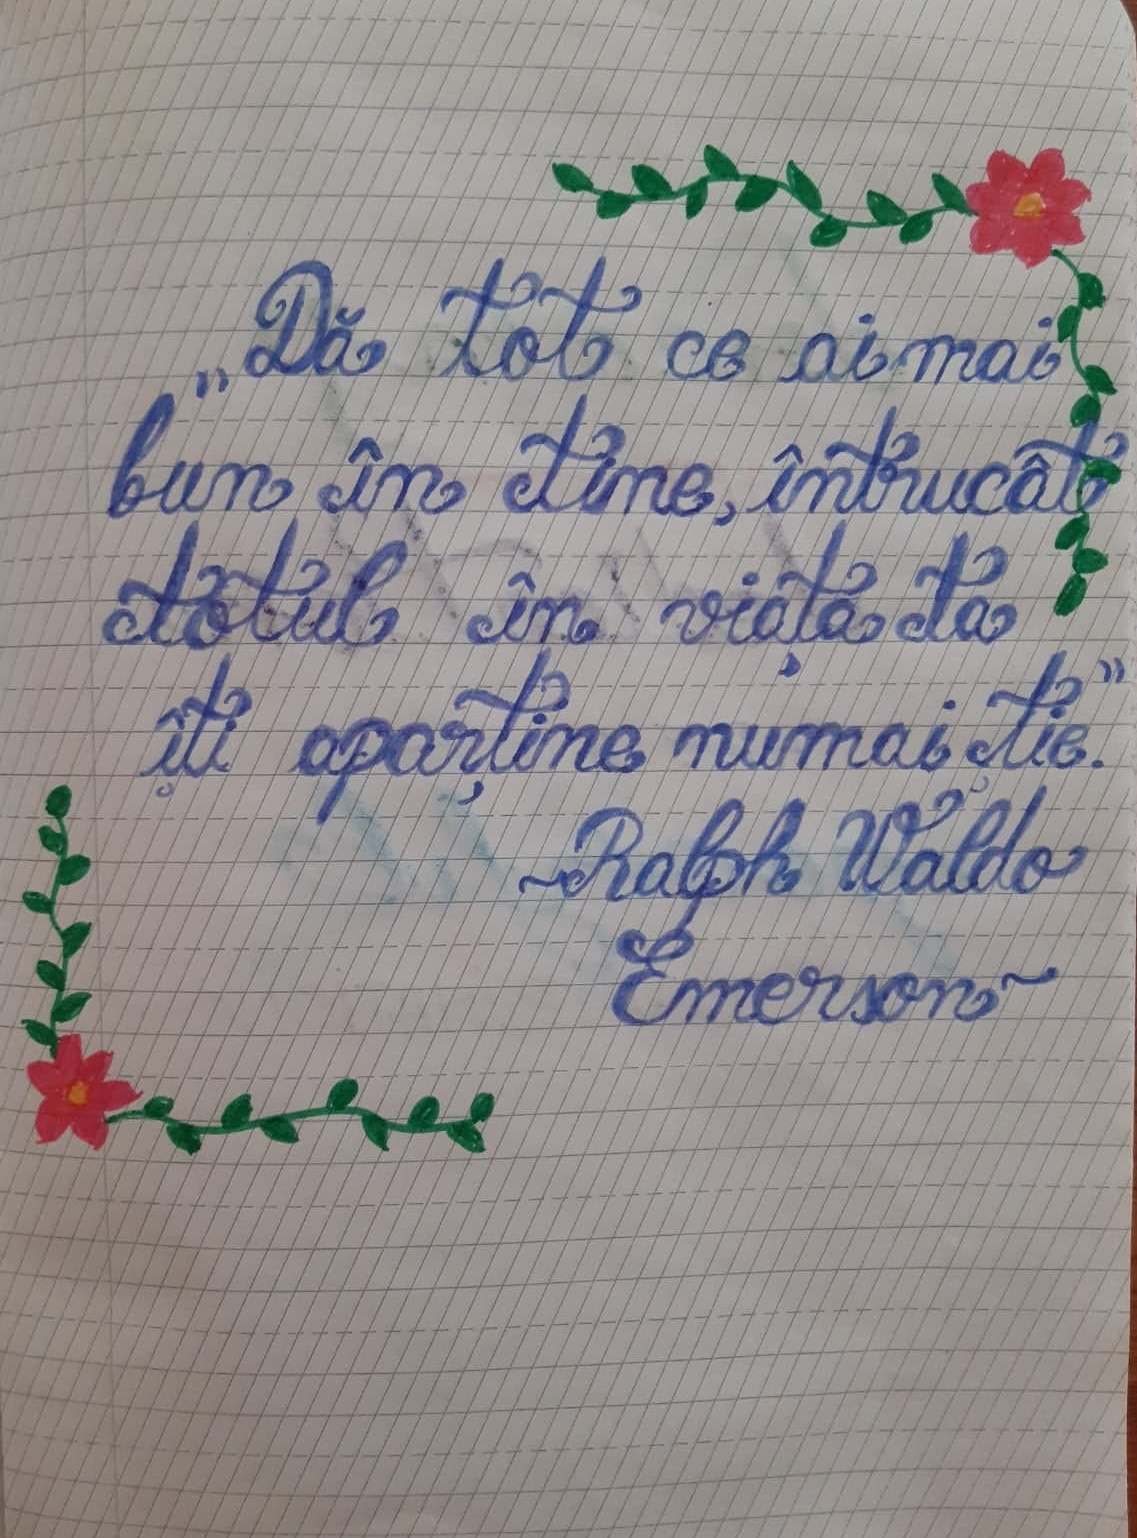 „Dă tot ce ai mai
bun în tine, întrucât
totul în viața ta
îți aparține numai ție.”
~Ralph Waldo
Emerson~